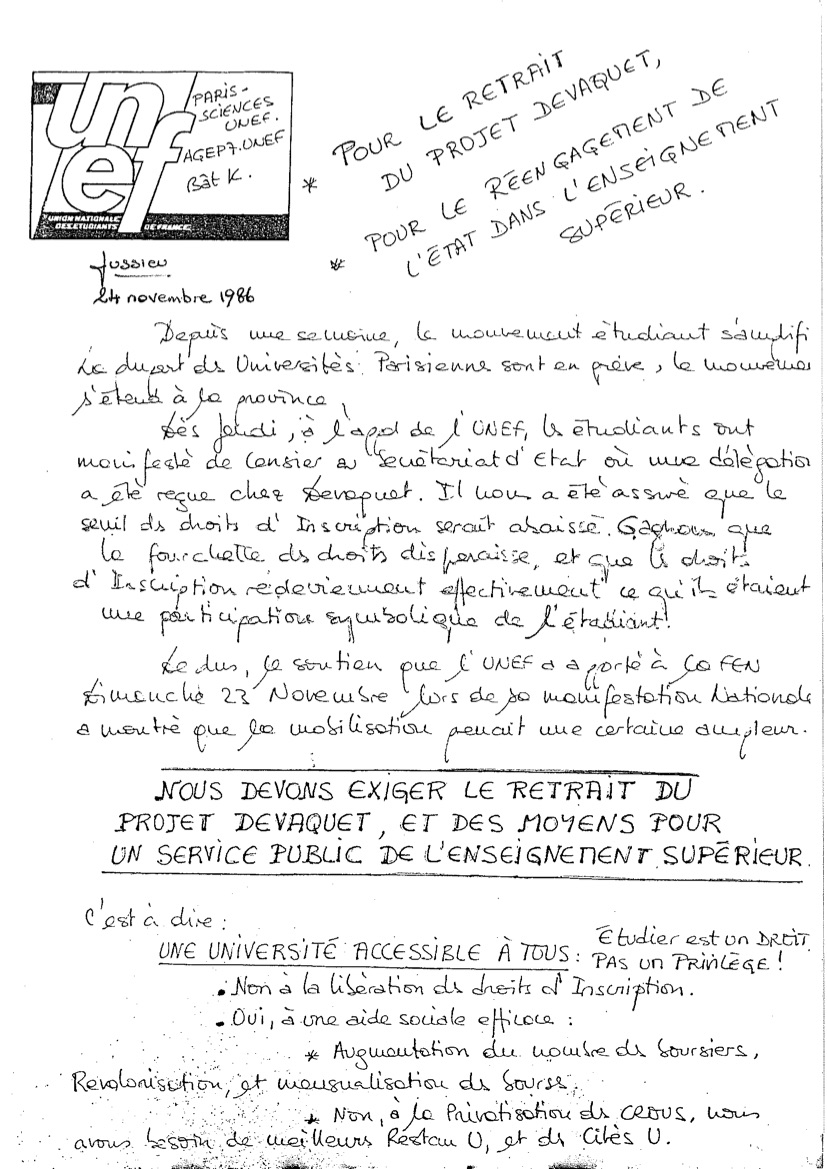 unef
PARIS-
SCIENCES
UNEF.
AGEP7.UNEF
Bât K.
UNION NATIONALE
DES ÉTUDIANTS DE FRANCE
Jussieu
24 novembre 1986
* POUR LE RETRAIT
DU PROJET DEVAQUET,
* POUR LE RÉENGAGEMENT DE
L'ÉTAT DANS L'ENSEIGNEMENT
SUPÉRIEUR.
Depuis une semaine, le mouvement étudiant s'amplifi
La dupart ds Universités Parisienne sont en grève, le mouveme
s'étend à la province,
Dès Jeudi, à l'appel de l'UNEF, ls étudiants ont
manifesté de Censier au Secrétariat d'Etat où une délégation
a été reçue chez Devaquet. Il nous a été assuré que le
seuil ds droits d'Inscription serait abaissé. Gagnons que
la fourchette ds droits disparaisse, et que ls droits
d'Inscription redeviennent effectivement ce qu'ils étaient
une participation symbolique de l'étudiant!
De plus, le soutien que l'UNEF a apporté à la FEN
Dimanche 23 Novembre lors de sa manifestation Nationale
a montré que la mobilisation prenait une certaine ampleur.
NOUS DEVONS EXIGER LE RETRAIT DU
PROJET DEVAQUET, ET DES MOYENS POUR
UN SERVICE PUBLIC DE L'ENSEIGNEMENT SUPÉRIEUR.
C'est à dire :
UNE UNIVERSITÉ ACCESSIBLE À TOUS : Etudier est un DROIT
PAS un PRIVILÈGE !
• Non à la libération ds droits d'Inscription.
• Oui, à une aide sociale efficace :
* Augmentation du nombre ds boursiers,
Revalorisation, et mensualisation ds bourses,
* Non, à la Privatisation ds CROUS, nous
avons besoin de meilleurs Restau U, et ds Cités U.